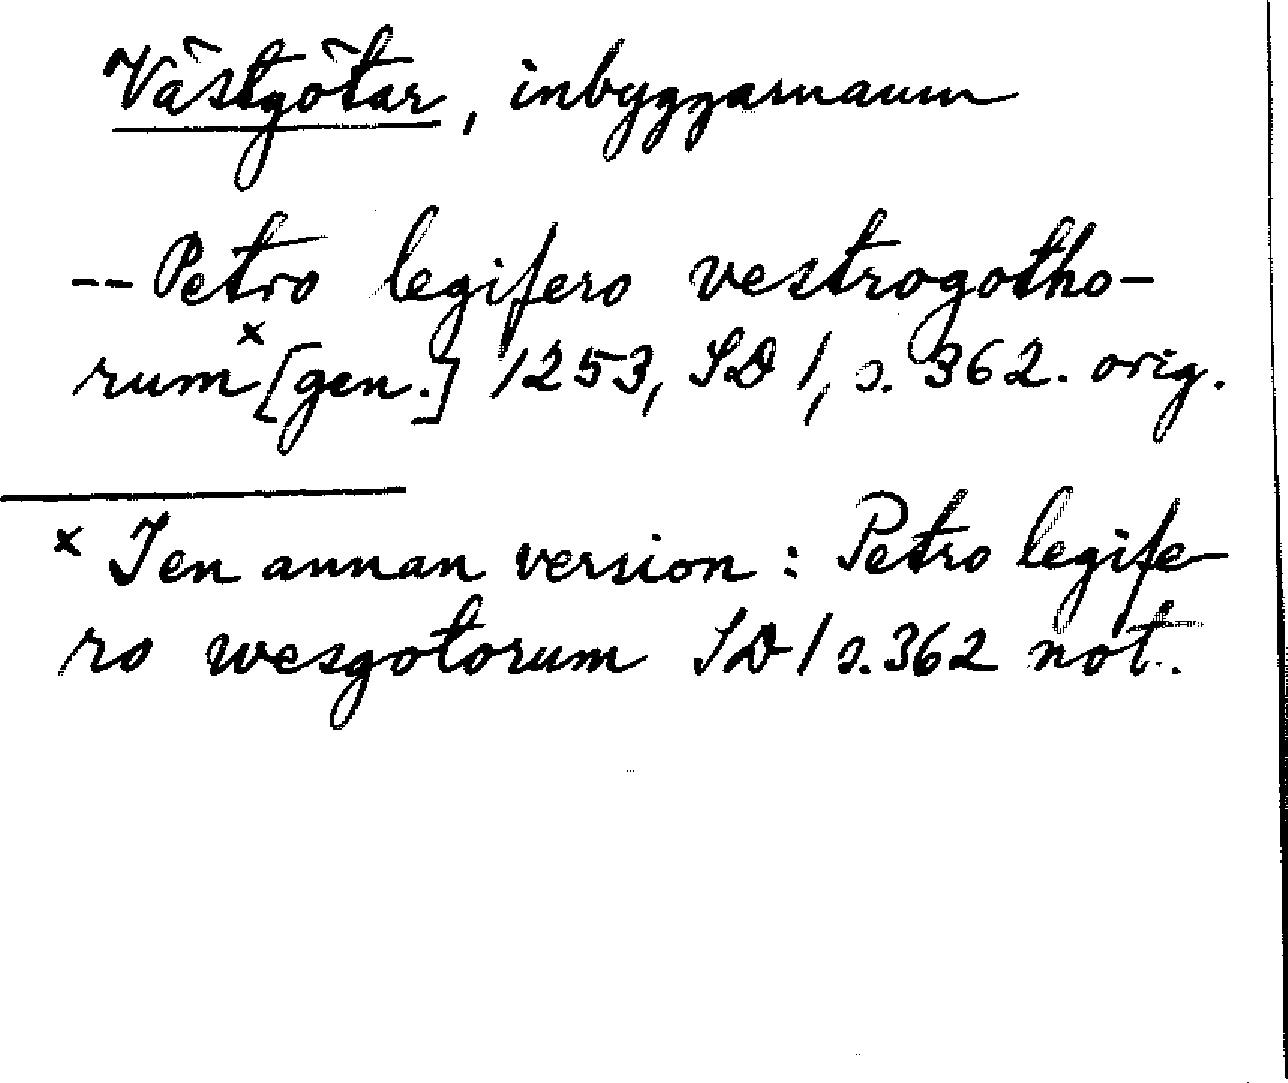 Västgötar, inbyggarnamn
-- Petro legifero vestrogotho-
rum x [gen.] 1253, SD 1, s. 362. orig.
x I en annan version: Petro legife-
ro wesgotorum SD 1 s. 362 not.